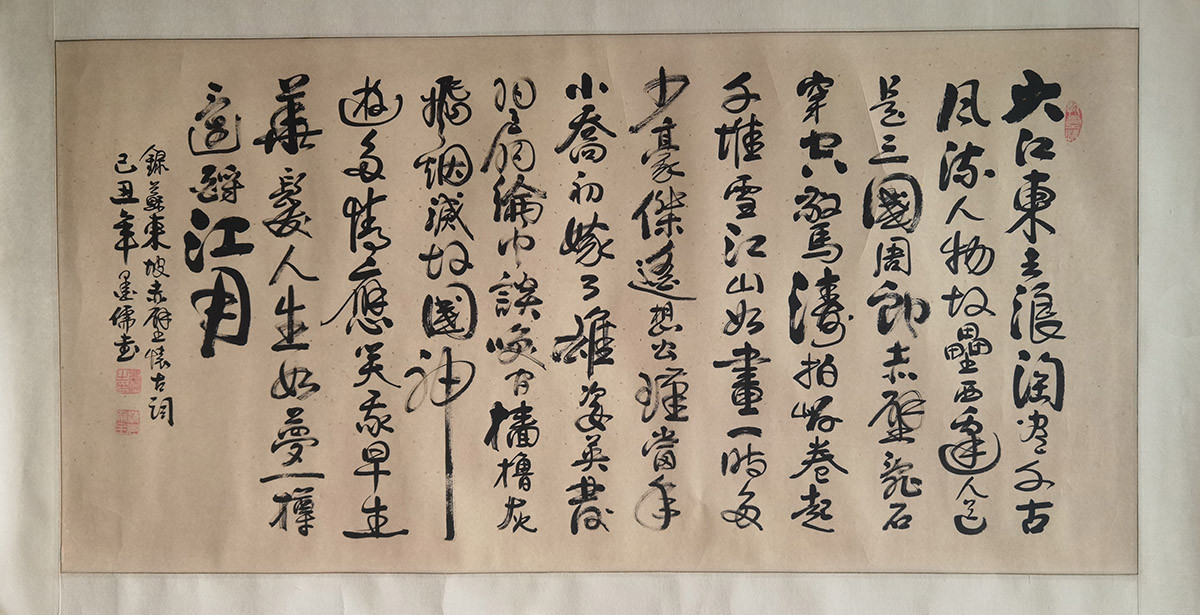 大江東去浪淘盡千古
風流人物故壘西邊人道
是三國周郎赤壁亂石
穿空驚濤拍岸卷起
千堆雪江山如畫一時多
少豪傑遙想公瑾當年
小喬初嫁了雄姿英發
羽扇綸巾談笑間檣櫓灰
飛烟滅故國神
遊多情應笑我早生
華髮人生如夢一樽
還酹江月
錄蘇東坡赤壁懷古詞
己丑年墨儒書